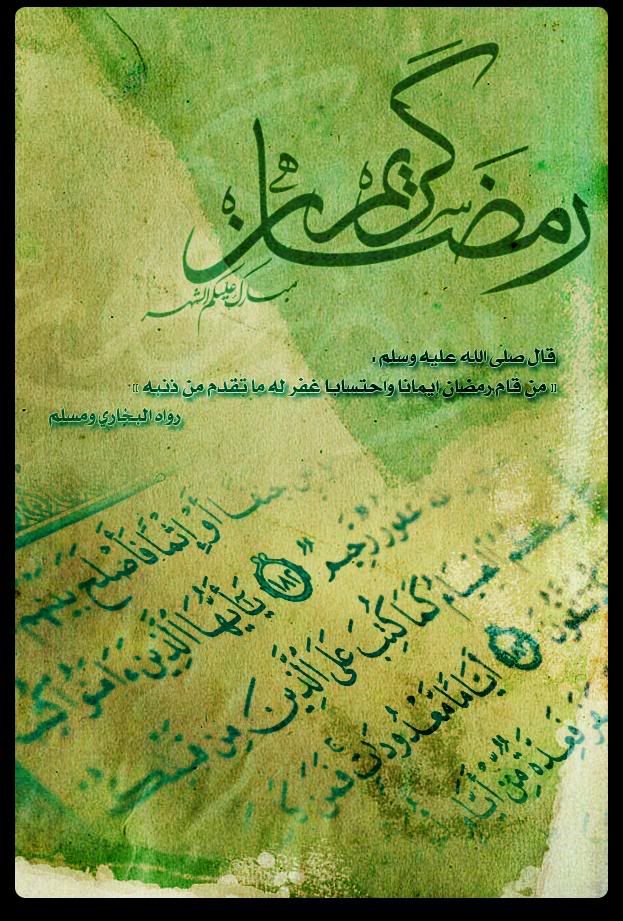 رمضان كريم
مبارك عليكم الشهر
قال صلى الله عليه وسلم :
(( من قام رمضان إيمانا واحتسابا غفر له ما تقدم من ذنبه ))
رواه البخاري ومسلم
جنفا أو إثما فأصلح بينهم
غفور رحيم ١٨٢ يَٰٓأَيُّهَا ٱلَّذِينَ ءَامَنُوا۟
ٱلصِّيَامُ كَمَا كُتِبَ عَلَى ٱلَّذِينَ مِن
١٨٣ أَيَّامًا مَّعْدُودَٰتٍ فَمَن
فَعِدَّةٌ مِّنْ أَيَّامٍ